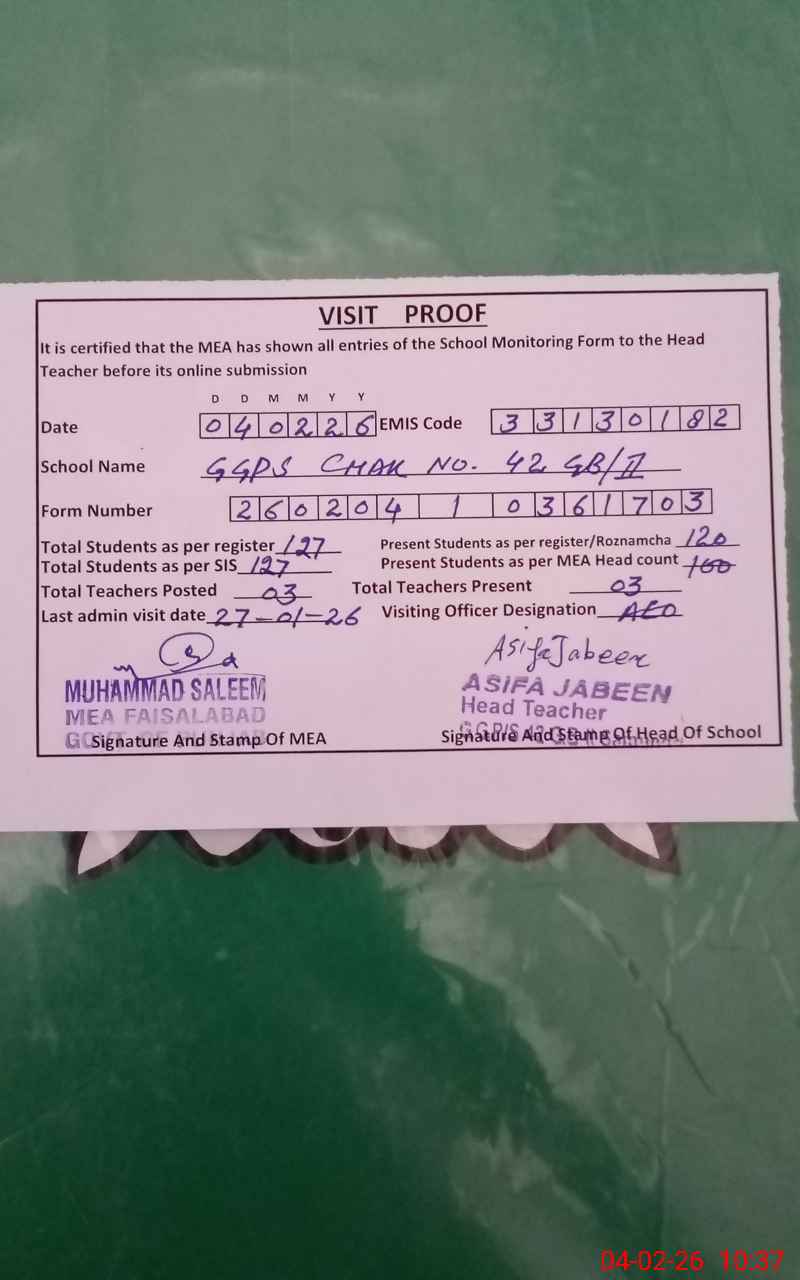 VISIT PROOF
It is certified that the MEA has shown all entries of the School Monitoring Form to the Head
Teacher before its online submission
D D M M Y Y
Date 0 4 0 2 2 6 EMIS Code 3 3 1 3 0 1 8 2
School Name GGPS CHAK NO. 42 GB/II
Form Number 2 6 0 2 0 4 1 0 3 6 1 7 0 3
Total Students as per register 127 Present Students as per register/Roznamcha 120
Total Students as per SIS 127 Present Students as per MEA Head count
Total Teachers Posted 03 Total Teachers Present 03
Last admin visit date 27-01-26 Visiting Officer Designation AEO
Asifa Jabeen
MUHAMMAD SALEEM ASIFA JABEEN
MEA FAISALABAD Head Teacher
Signature And Stamp Of MEA Signature And Stamp Of Head Of School
04-02-26 10:37